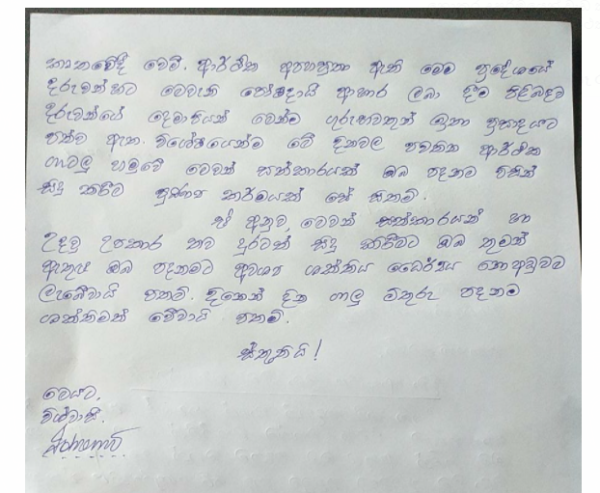 කෘතවේදී වෙමි. ආර්ථික අපහසුතා ඇති මෙම ප්‍රදේශයේ
දරුවන්හට මෙවැනි පෝෂදායී ආහාර ලබා දීම පිළිබඳව
දරුවන්ගේ දෙමාපියන් මෙන්ම ගුරුභවතුන් ඉතා ප්‍රසාදයට
පත්ව ඇත. විශේෂයෙන්ම මේ දිනවල පවතින ආර්ථික
ගැටලු හමුවේ මෙවන් සත්කාරයක් ඔබ පදනම විසින්
සිදු කිරීම පුණ්‍ය කර්මයක් සේ සිතමි.
ඒ අනුව, මෙවන් සත්කාරයන් හා
උදව් උපකාර තව දුරටත් සිදු කිරීමට ඔබ තුමන්
ඇතුළු ඔබ පදනමට අවශ්‍ය ශක්තිය ධෛර්යය නොඅඩුවම
ලැබේවායි පතමි. දිනෙන් දින ගාලු මිතුරු පදනම
ශක්තිමත් වේවායි පතමි.
ස්තූතියි!
මෙයට,
විශ්වාසී.